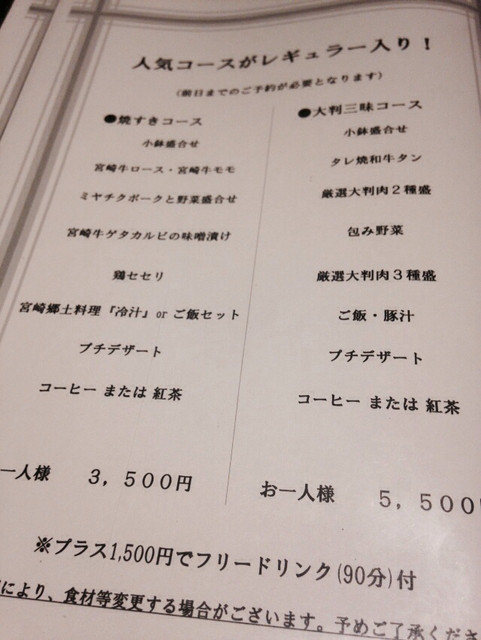 人気コースがレギュラー入り！
（前日までのご予約が必要となります）
●焼すきコース
小鉢盛合せ
宮崎牛ロース・宮崎牛モモ
ミヤチクポークと野菜盛合せ
宮崎牛ゲタカルビの味噌漬け
鶏セセリ
宮崎郷土料理『冷汁』or ご飯セット
プチデザート
コーヒー または 紅茶
一人様 3，500円
●大判三昧コース
小鉢盛合せ
タレ焼和牛タン
厳選大判肉２種盛
包み野菜
厳選大判肉３種盛
ご飯・豚汁
プチデザート
コーヒー または 紅茶
お一人様 5，500
※プラス1,500円でフリードリンク(90分)付
により、食材等変更する場合がございます。予めご了承くださ